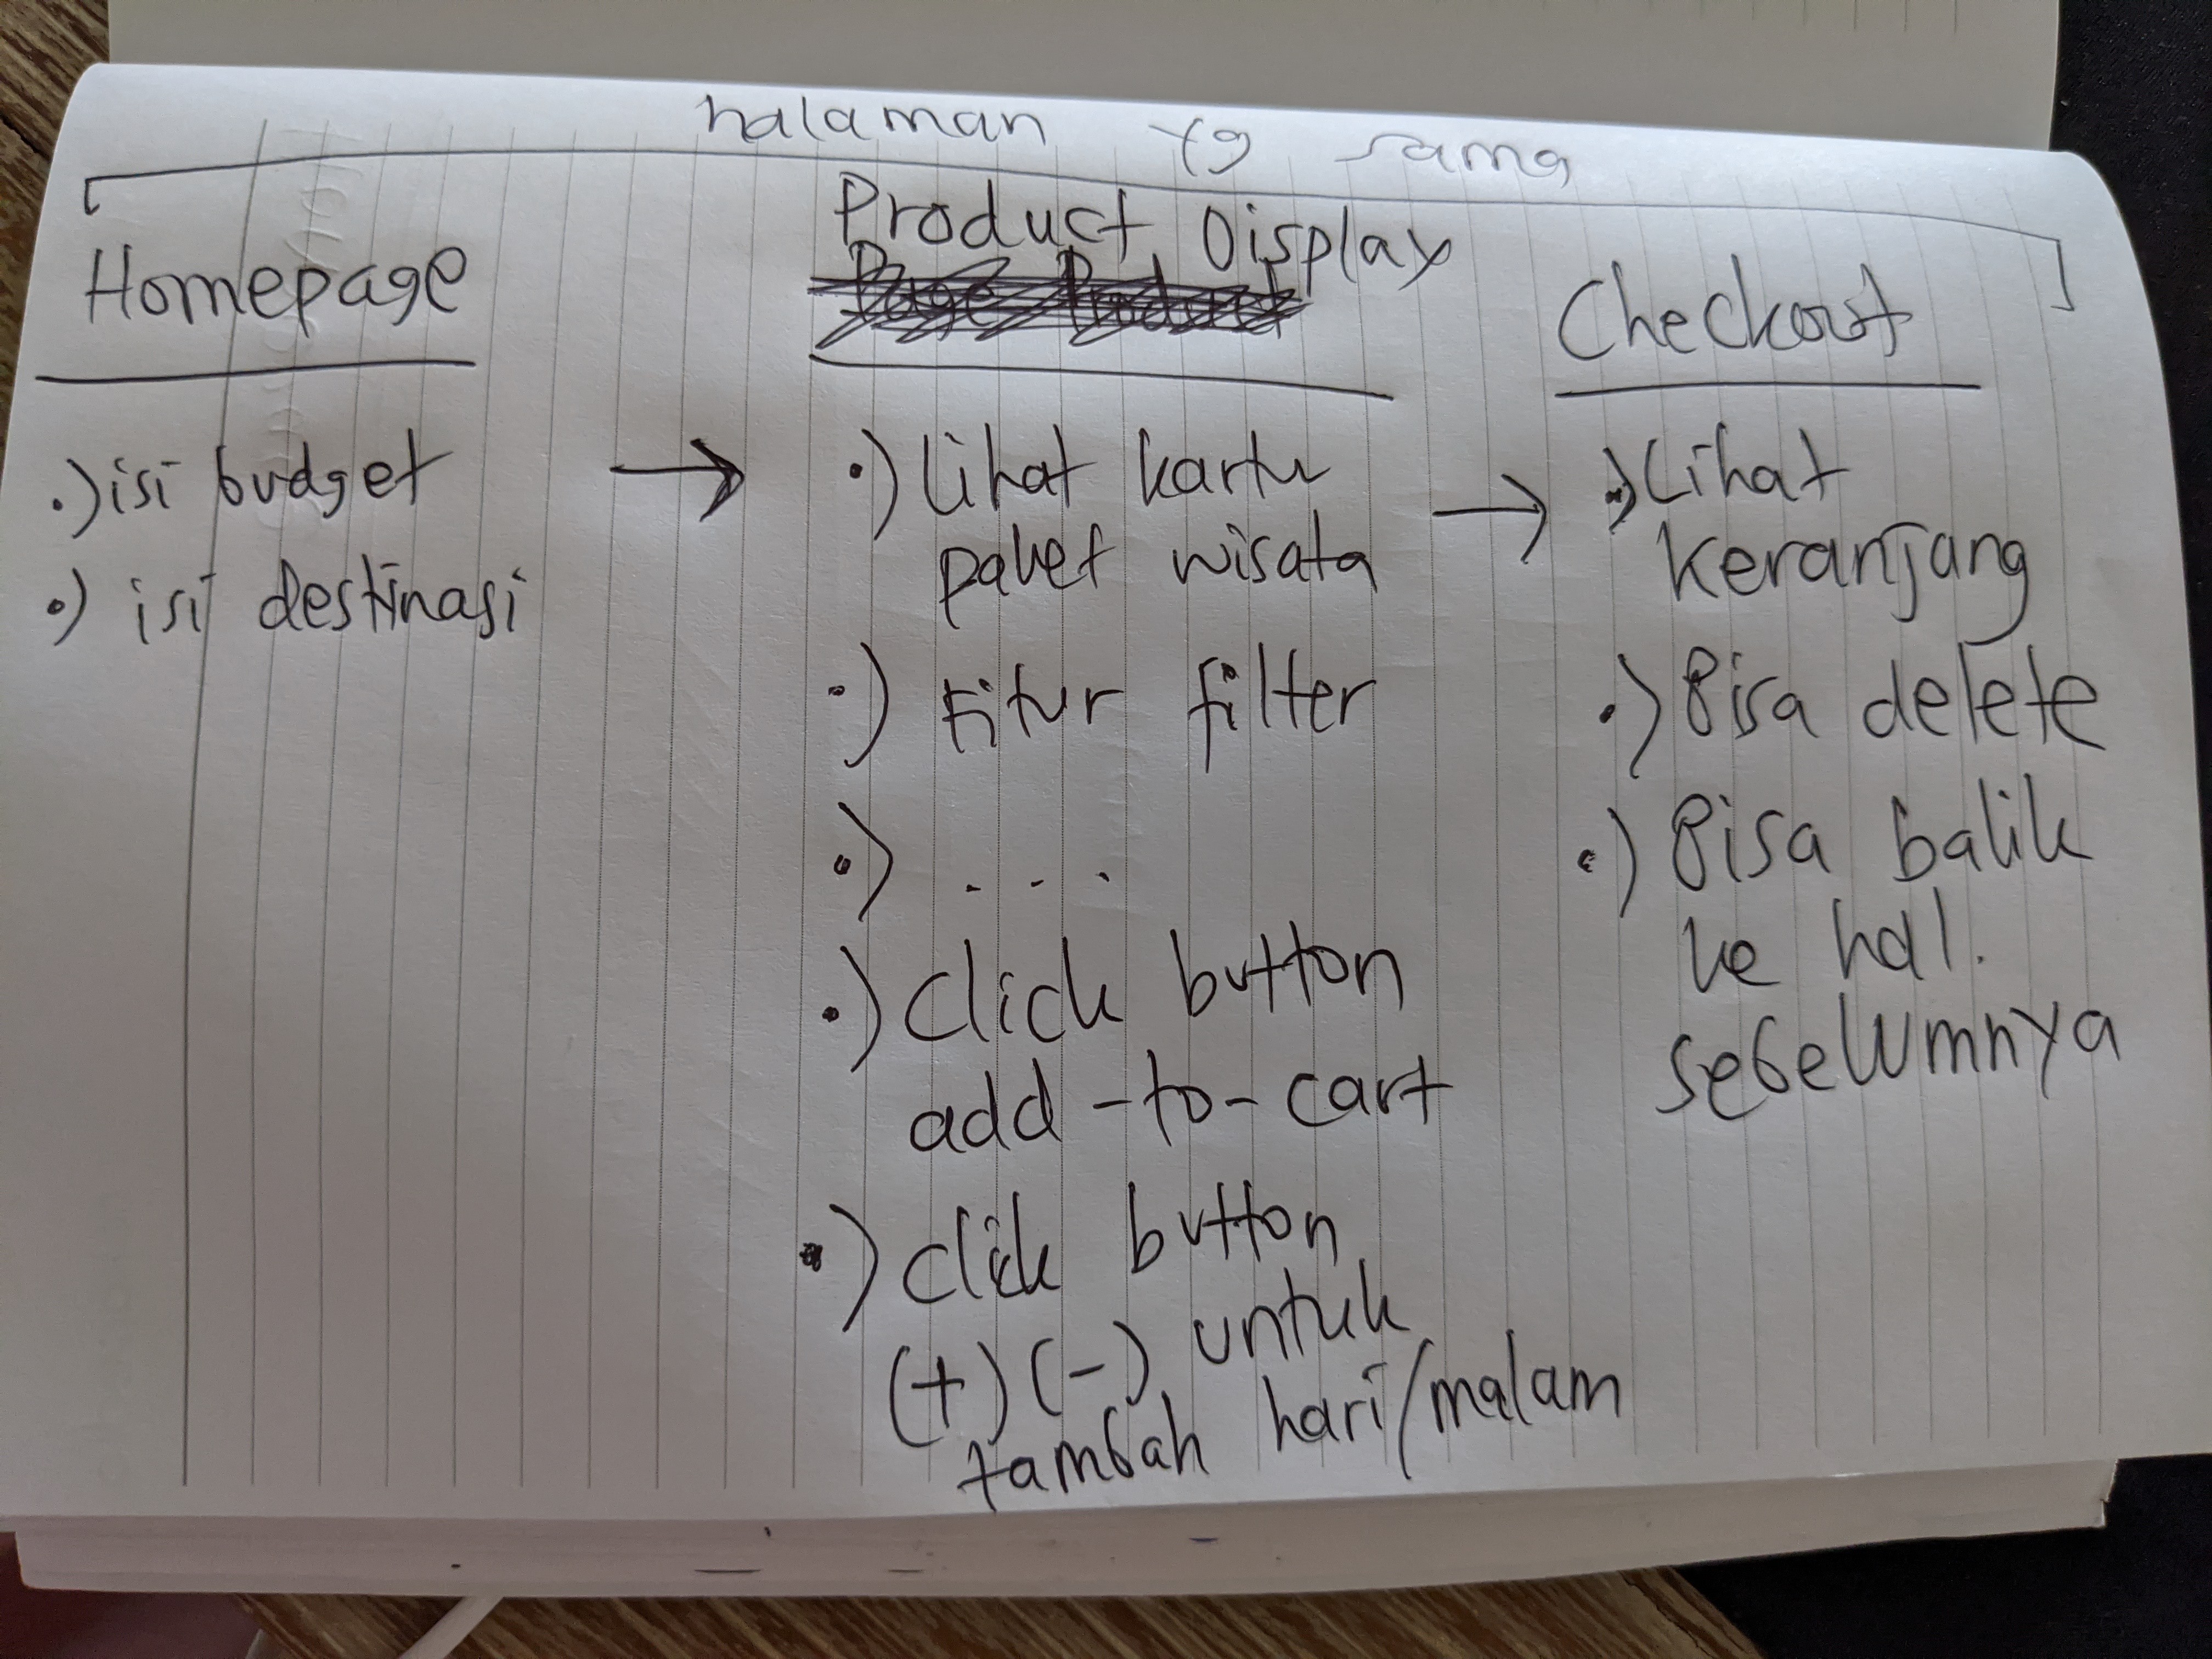 halaman yg sama
Homepage
.) isi budget
.) isi destinasi
→
Product Display
Page Product
.) Lihat kartu
paket wisata
.) Fitur filter
.) ...
.) Click button
add-to-cart
.) Click button
(+) (-) untuk
tambah hari/malam
→
Checkout
.) Lihat
keranjang
.) Bisa delete
.) Bisa balik
ke hal.
sebelumnya